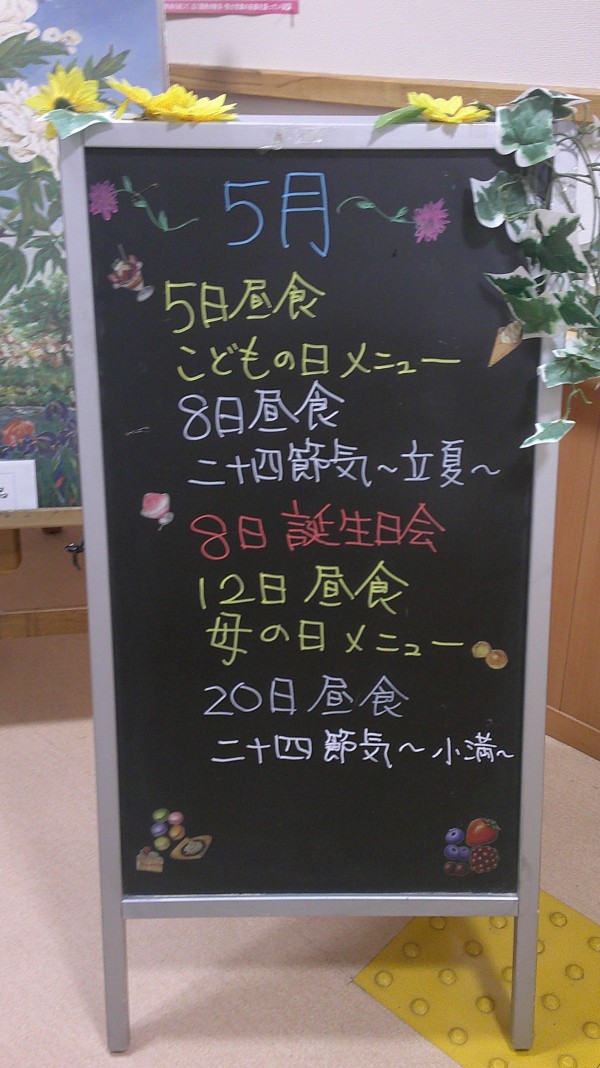 5月
5日昼食
こどもの日メニュー
8日昼食
二十四節気～立夏～
8日誕生日会
12日昼食
母の日メニュー
20日昼食
二十四節気～小満～